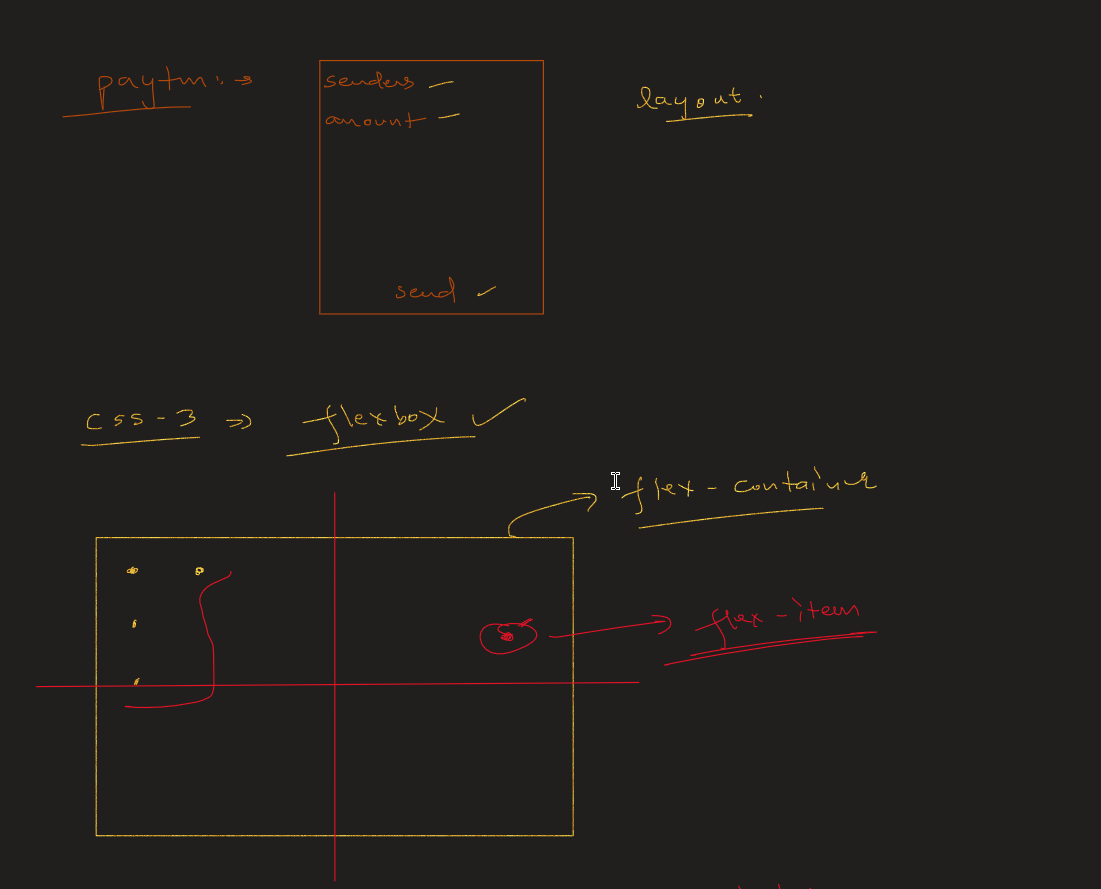 paytm : →
senders –
amount –
layout .
send ✓
css-3 ⇒ flexbox ✓
flex - container
flex - item